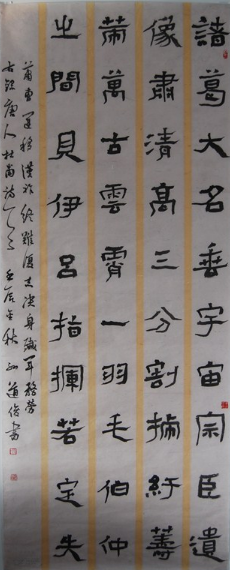 諸葛大名垂宇宙宗臣遺
像肅清高三分割據紆籌
策萬古雲霄一羽毛伯仲
之間見伊呂指揮若定失
蕭曹運移漢祚終難復志決身殲軍務勞
右錄唐人杜甫詩 壬辰年秋 道俊書